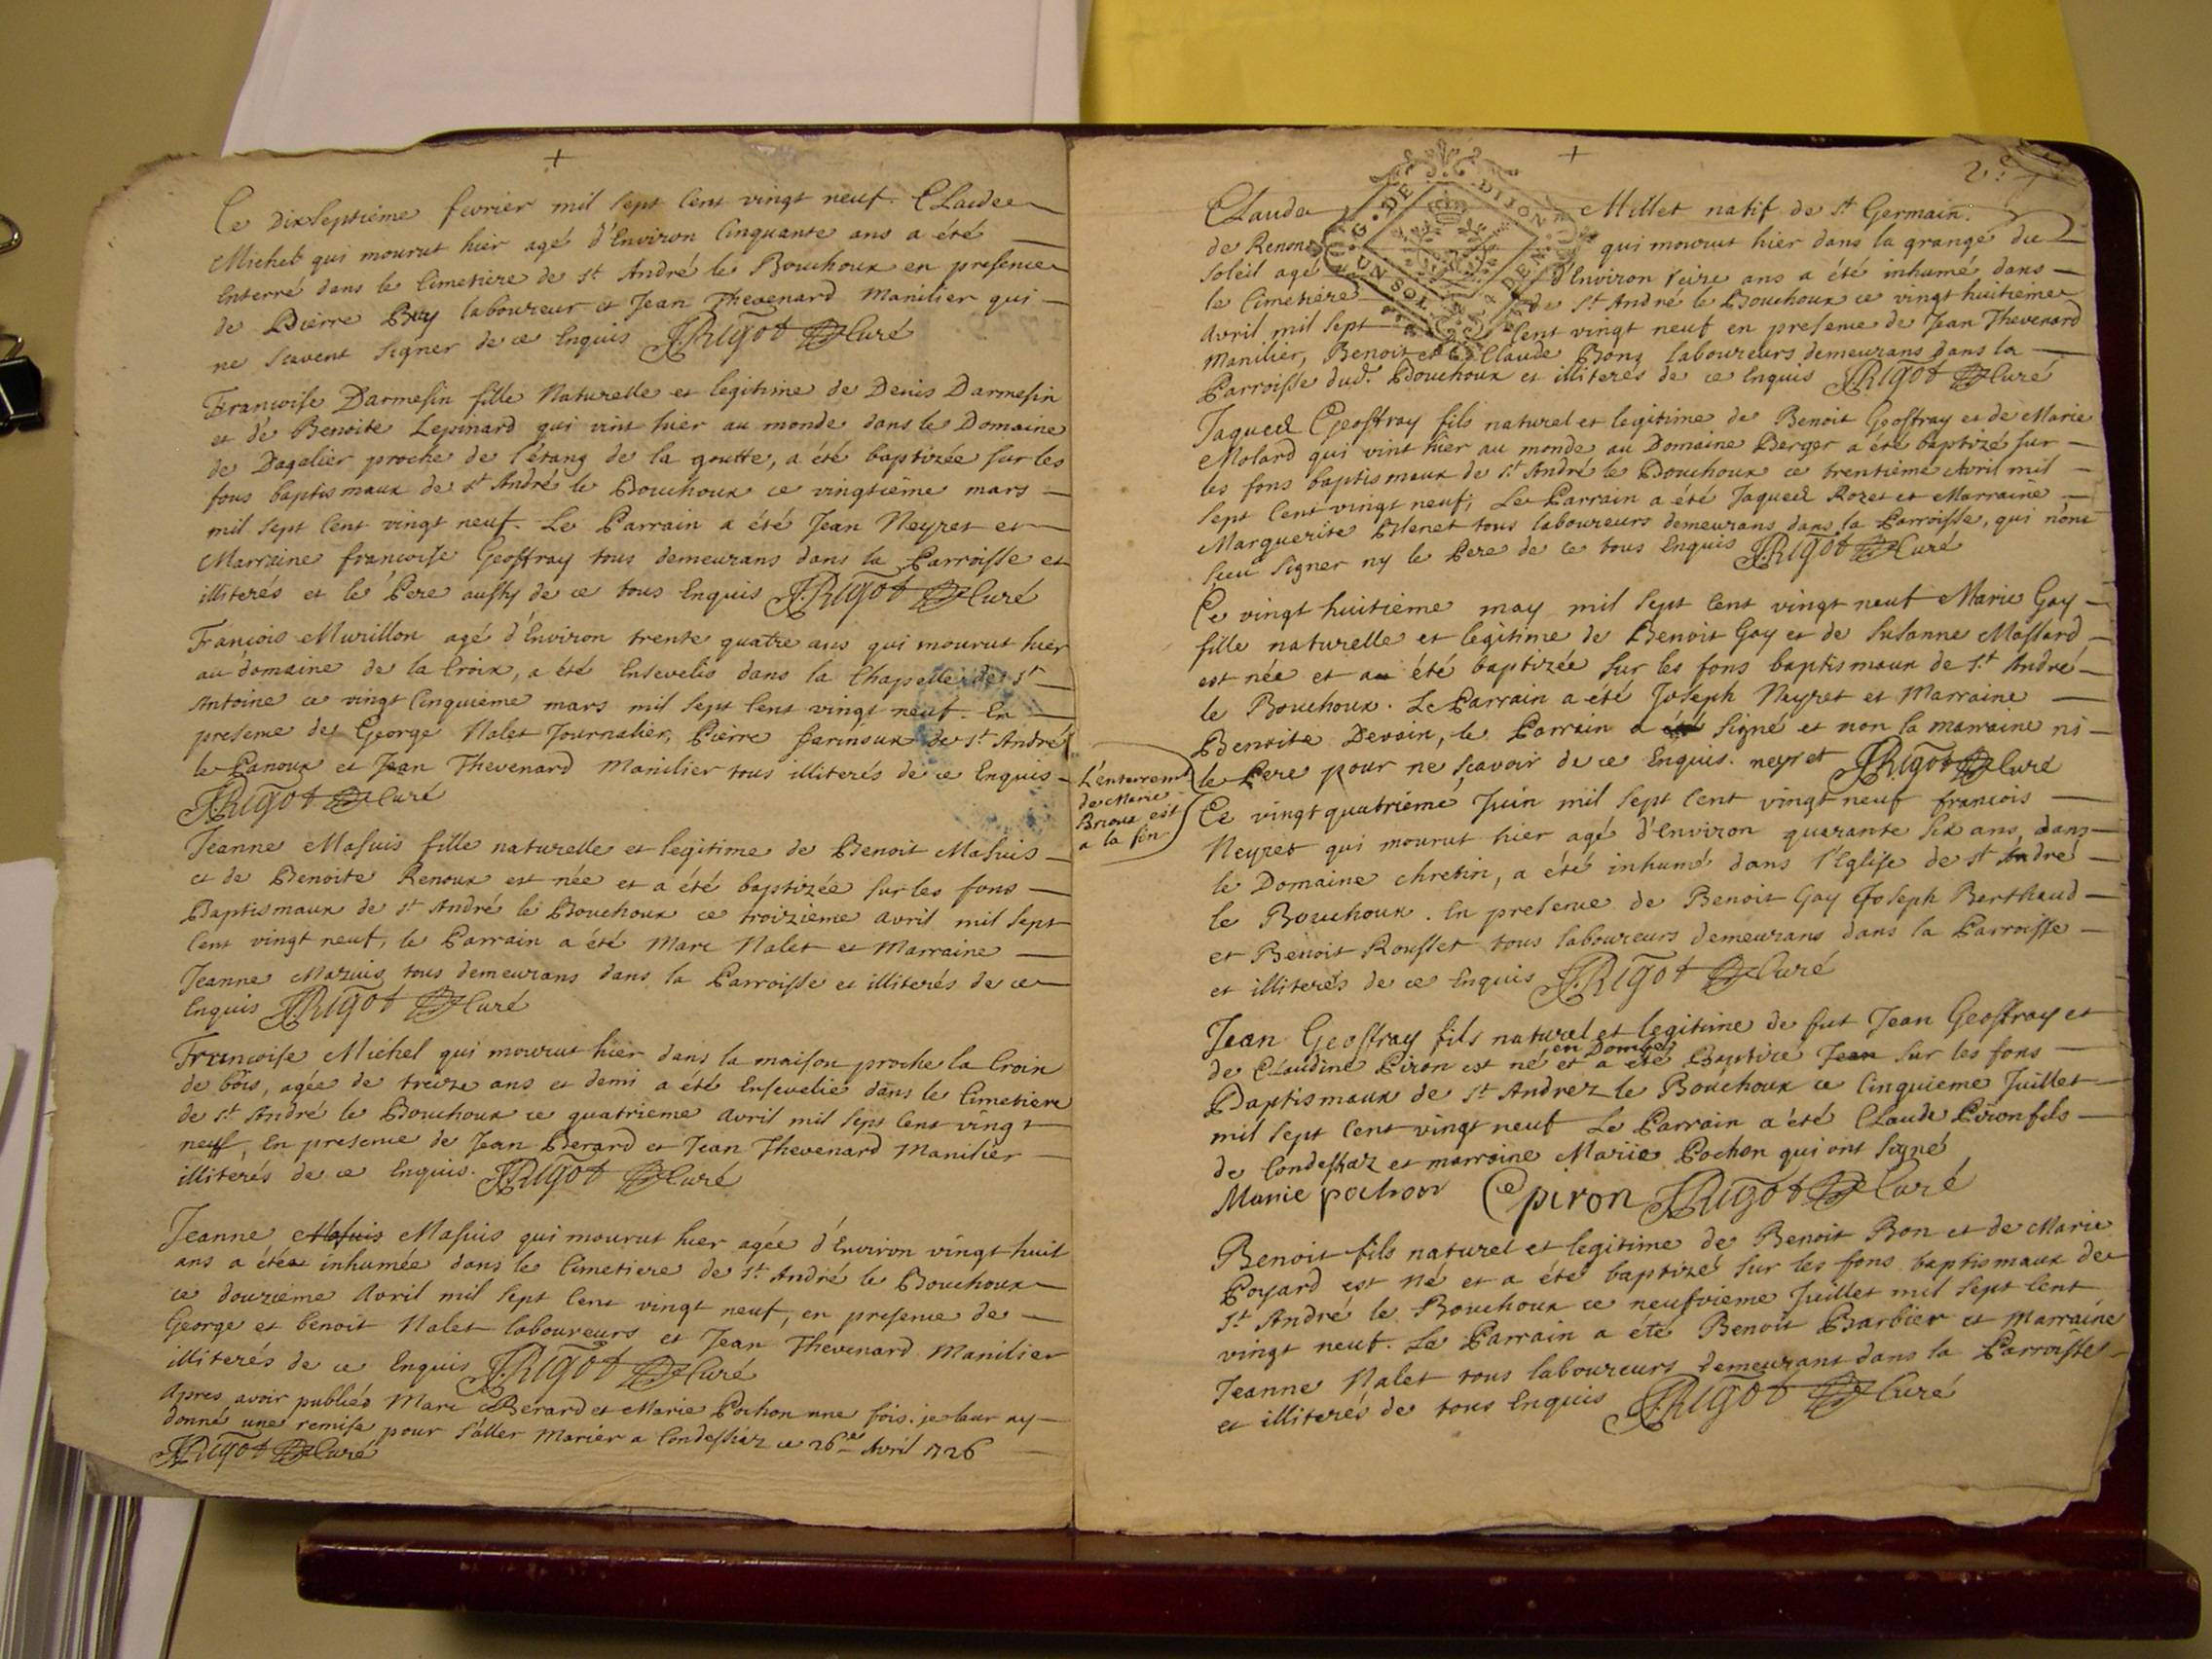 +
Ce Dixseptiéme fevrier mil sept Cent vingt neuf. CLaude
Michel qui mourut hier agé d'Environ Cinquante ans a été
Enterré dans le Cimetiere de st André le Bouchoux en presence
de Pierre Buy laboureur et Jean Thevenard Manilier qui
ne scavent signer de ce Enquis JRigot Curé
Francoise Darmesin fille Naturelle et legitime de Denis Darmesin
et de Benoite Lepinard qui vint hier au monde dans le Domaine
de Dagalier proche de l'étang de la goutte, a été baptizée sur les
fons baptismaux de st André le Bouchoux ce vingtiéme mars
mil sept Cent vingt neuf. Le Parrain a été Jean Neyret et
Marraine francoise Geoffray tous demeurans dans la Parroisse et
illiterés et le Pere aussy de ce tous Enquis JRigot Curé
Francois Murillon agé d'Environ trente quatre ans qui mourut hier
au domaine de la Croix, a été Ensevelis dans la Chapelle de st
Antoine ce vingt Cinquiéme mars mil sept Cent vingt neuf. En
presence de George Nalet Journalier, Pierre farinoux de st André
le Panoux et Jean Thevenard Manilier tous illiterés de ce Enquis
JRigot Curé
Jeanne Masuis fille naturelle et legitime de Benoit Masuis
et de Benoite Renoux est née et a été baptizée sur les fons
Baptismaux de st André le Bouchoux ce troizieme Avril mil sept
Cent vingt neuf, le Parrain a été Marc Nalet et Marraine
Jeanne Mazuis tous demeurans dans la Parroisse et illiterés de ce
Enquis JRigot Curé
Francoise Michel qui mourut hier dans la maison proche la Croix
de bois, agée de treize ans et demi a été Ensevelie dans le Cimetiere
de st André le Bouchoux ce quatrieme Avril mil sept Cent vingt
neuff, En presence de Jean Berard et Jean Thevenard Manilier
illiterés de ce Enquis. JRigot Curé
Jeanne Masuis Masuis qui mourut hier agée d'Environ vingt huit
ans a été inhumée dans le Cimetiere de st André le Bouchoux
ce douziéme Avril mil sept Cent vingt neuf, en presence de
George et benoit Nalet laboureurs et Jean Thevenard Manilier
illiterés de ce Enquis JRigot Curé
Apres avoir publiés Marc Berard et Marie Pochon une fois. je leur ay
donné une remise pour s'aller Marier a Condessiaz ce 26e Avril 1726
JRigot Curé
+
G. DE DIJON
UN SOL 4 DEN
CLaude Millet natif de st Germain
de Renon qui mourut hier dans la grange du
Soleil agé d'Environ seize ans a été inhumé dans
le Cimetiere de st André le Bouchoux ce vingt huitiéme
Avril mil sept Cent vingt neuf en presence de Jean Thevenard
Manilier, Benoit et Claude Bons laboureurs demeurans dans la
Parroisse dud. Bouchoux et illiterés de ce Enquis JRigot Curé
Jaques Geoffray fils naturel et legitime de Benoit Geoffray et de Marie
Molard qui vint hier au monde au Domaine Berger a été baptizé sur
les fons baptismaux de st André le Bouchoux ce trentiéme Avril mil
sept Cent vingt neuf; Le Parrain a été Jaques Rozet et Marraine
Marguerite tous laboureurs demeurans dans la Parroisse, qui n'ont
sceu signer ny le Pere de ce tous Enquis JRigot Curé
Ce vingt huitiéme may mil sept Cent vingt neuf Marie Gay
fille naturelle et legitime de Benoit Gay et de Susanne Massard
est née et a été baptizée sur les fons baptismaux de st André
le Bouchoux. Le Parrain a été Joseph Neyret et Marraine
Benoite Devain, le Parrain a été signé et non la marraine ni
le Pere pour ne scavoir de ce Enquis. neyret JRigot Curé
L'enterremt
de Marie
Brioux est
a la fin
Ce vingt quatriéme Juin mil sept Cent vingt neuf francois
Neyret qui mourut hier agé d'Environ quarante six ans, dans
le Domaine chretin, a été inhumé dans l'Eglise de st André
le Bouchoux. En presence de Benoit Gay Joseph Berthaud
et Benoit Rousset tous laboureurs demeurans dans la Parroisse
et illiterés de ce Enquis JRigot Curé
Jean Geoffray fils naturel et legitime de fut Jean Geoffray et
en Dombes
de Claudine Piron est né et a été Baptizé Jean sur les fons
Baptismaux de st Andrez le Bouchoux ce Cinquieme Juillet
mil sept Cent vingt neuf Le Parrain a été CLaude Pironfils
de Condessiaz et marraine Mariie Pochon qui ont signé
Marie pochon C piron JRigot Curé
Benoit fils naturel et legitime de Benoit Bon et de Marie
Poyard est Né et a été baptizé sur les fons baptismaux de
st André le Bouchoux ce neufvieme Juillet mil sept Cent
vingt neuf. Le Parrain a été Benoit Barbier et Marraine
Jeanne Nalet tous laboureurs demeurant dans la Parroisse
et illiterés de tous Enquis JRigot Curé